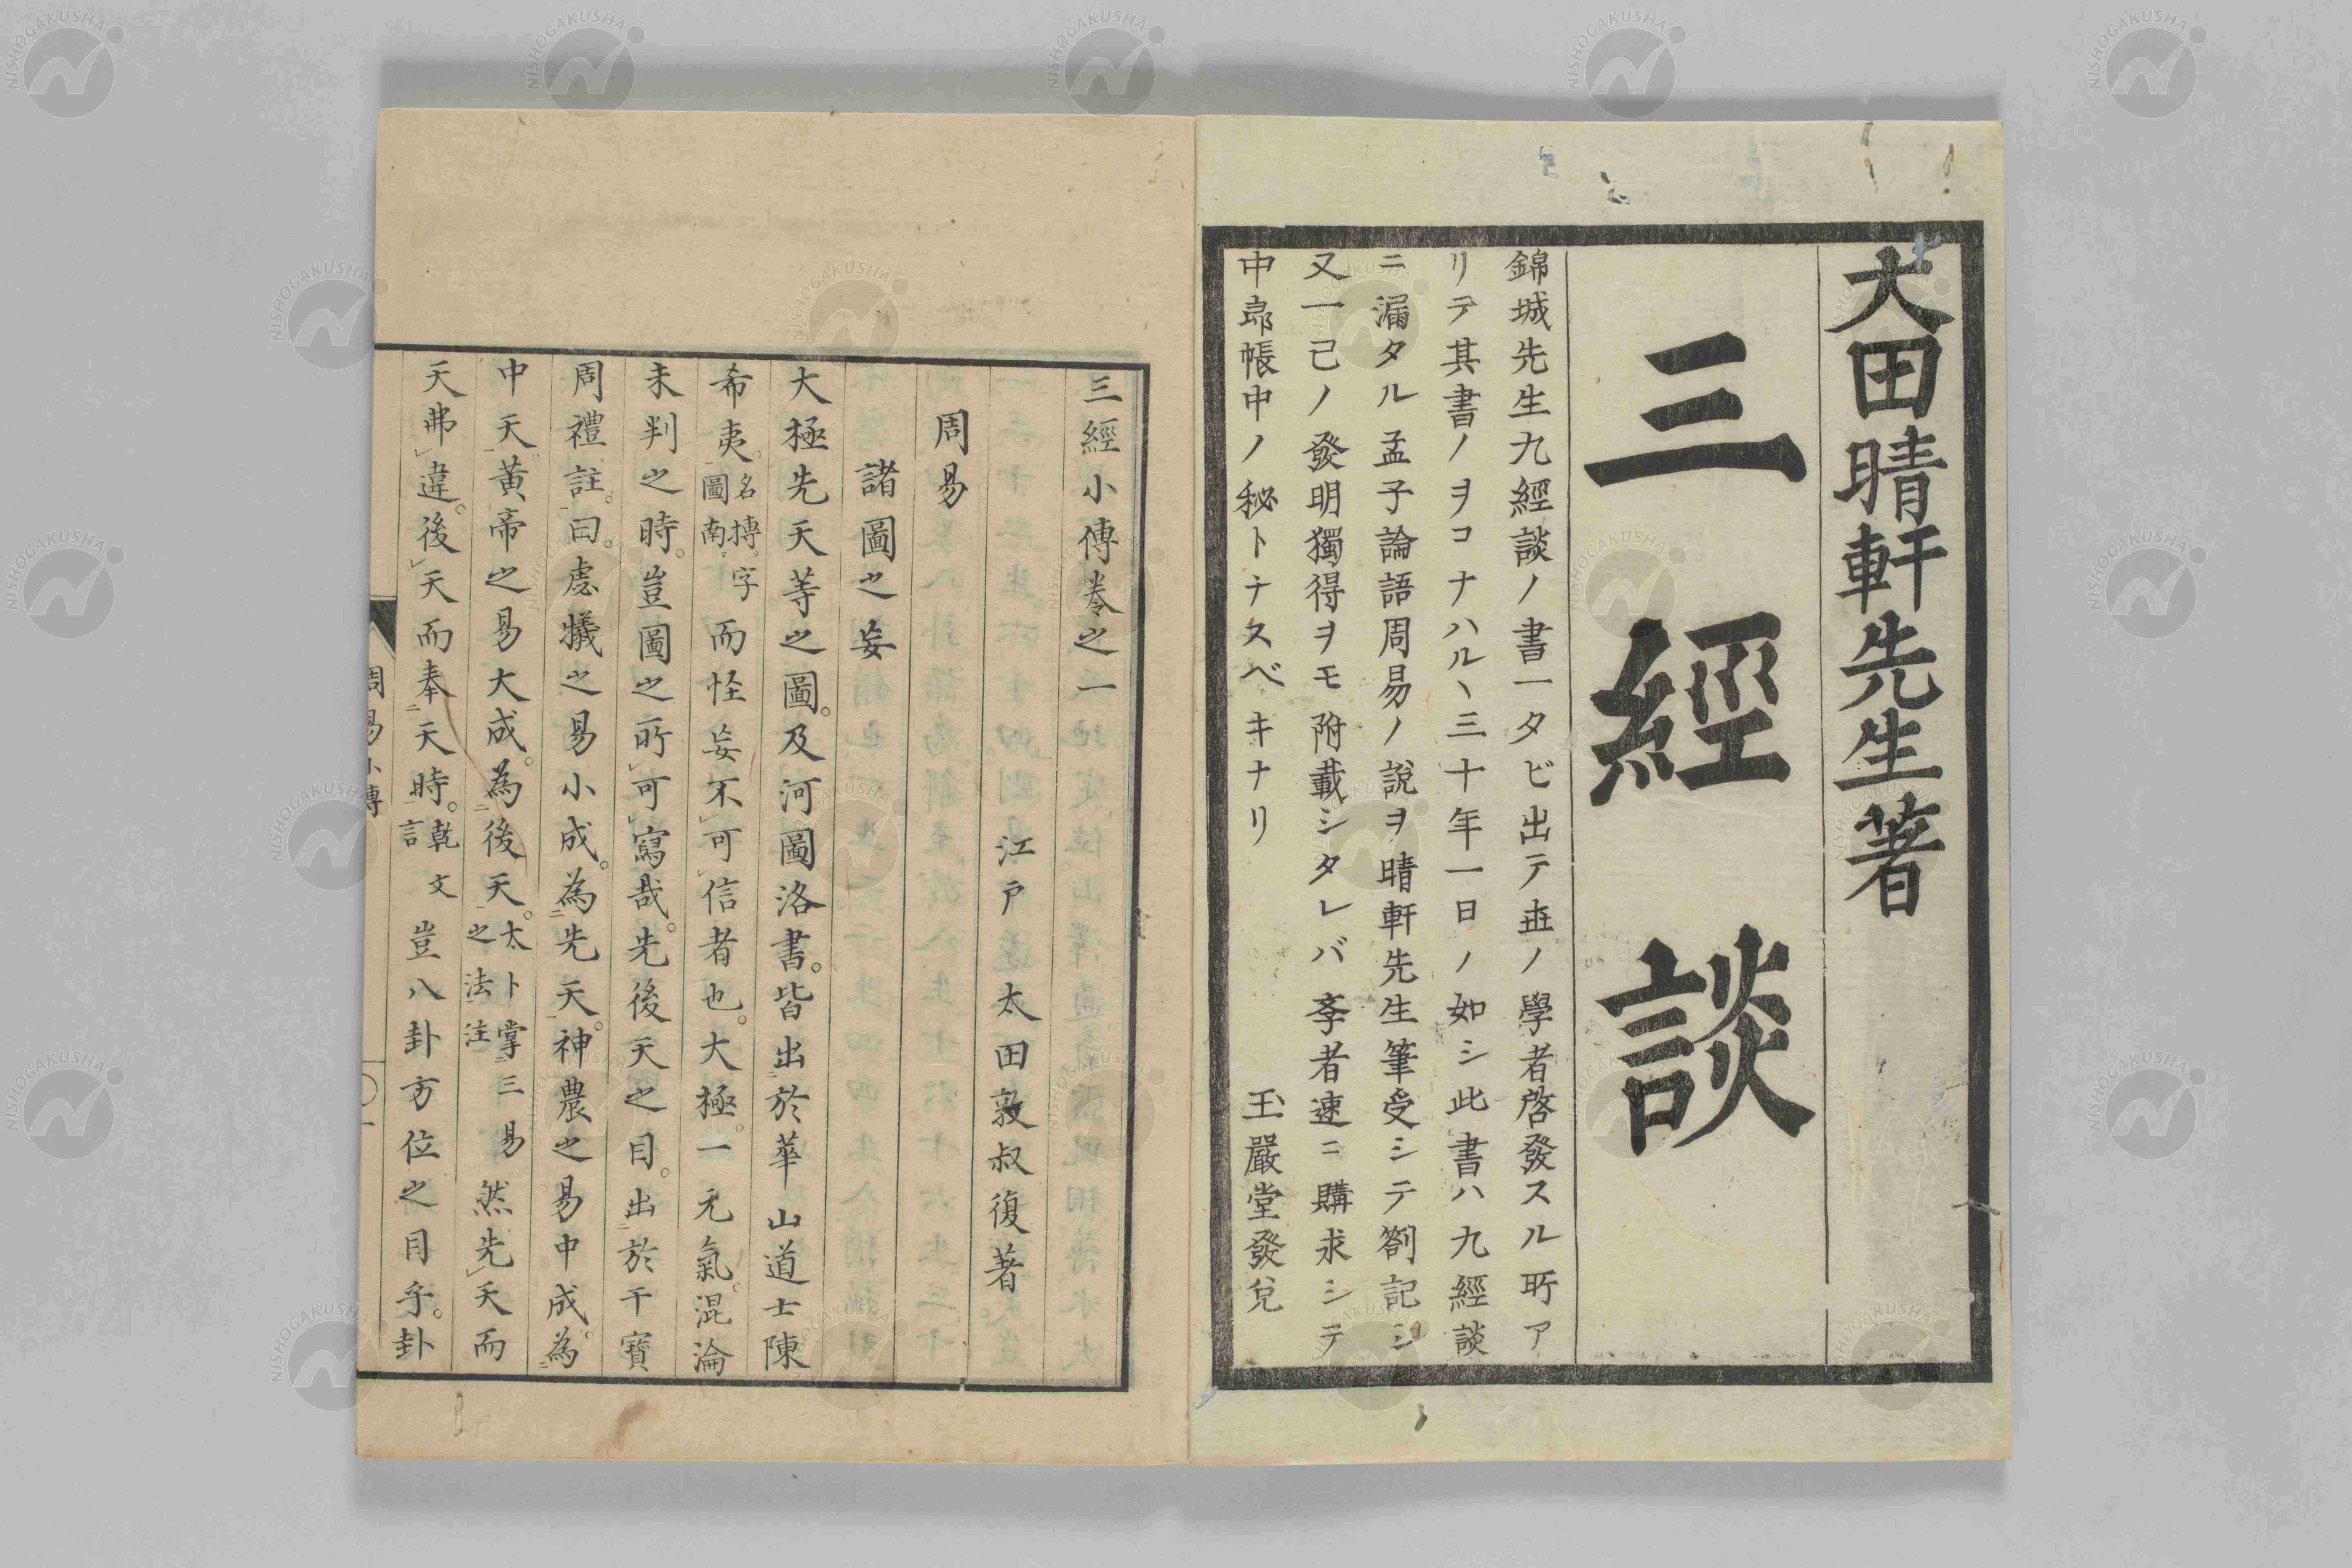 大田晴軒先生著
三經談
錦城先生九經談ノ書一タビ出テ世ノ學者啓發スル所ア
リテ其書ノヲコナハルヽ三十年一日ノ如シ此書ハ九經談
ニ漏タル孟子論語周易ノ說ヲ晴軒先生筆受シテ劄記シ
又一己ノ發明獨得ヲモ附載シタレバ斈者速ニ購求シテ
中郎帳中ノ秘トナスベキナリ
玉巖堂發兌
三經小傳卷之一
江戶 太田敦叔復著
周易
諸圖之妄
大極先天等之圖。及河圖洛書。皆出於華山道士陳
希夷。名摶。字圖南。而怪妄不可信者也。大極。一元氣。混淪
未判之時。豈圖之所可寫哉。先後天之目。出於干寶
周禮註。曰。處犧之易小成。為先天。神農之易中成。為
中天。黃帝之易大成。為後天。太卜掌三易之法注 然先天而
天弗違。後天而奉天時。乾文言 豈八卦方位之目乎。卦
周易小傳
NISHOGAKUSHA